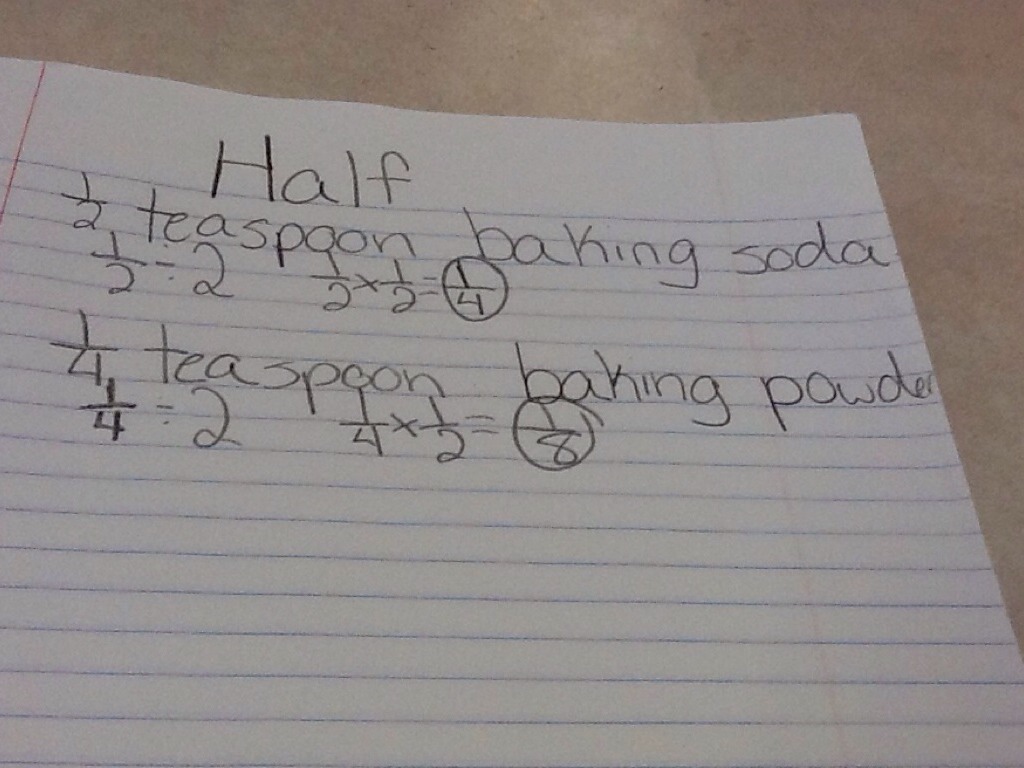 Half
1/2 teaspoon baking soda
1/2 ÷ 2 1/2 × 1/2 = 1/4
1/4 teaspoon baking powder
1/4 ÷ 2 1/4 × 1/2 = 1/8